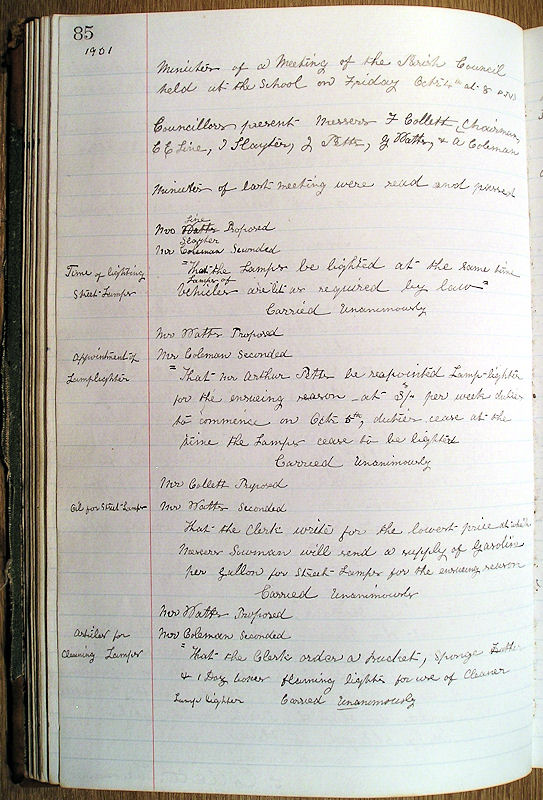 85
1901
Minutes of a Meeting of the Parish Council
held at the School on Friday Octr 4th at 8
Councillors present Messers F Collett Chairman
C C Line, J Slayter, J Petts, G Watts, & A Coleman
Minutes of last meeting were read and passed
Line
Mr Watts Proposed
Slayter
Mr Coleman Seconded
Time of lighting
Street Lamps
"That the Lamps be lighted at the same time
Lamps of
Vehicles are lit as required by law"
Carried Unanimously
Mr Watts Proposed
Appointment of
Lamplighter
Mr Coleman Seconded
"That Mr Arthur Petts be reappointed Lamp-lighter
for the ensueing season at 3/- per week duties
to commence on Octr 5th, duties cease at the
time the Lamps cease to be lighted
Carried Unanimously
Mr Collett Proposed
Oil for Street Lamps
Mr Watts Seconded
That the Clerk write for the lowest price at which
Messers will send a supply of Gasoline
per Gallon for Street Lamps for the ensueing season
Carried Unanimously
Mr Watts Proposed
Articles for
Cleaning Lamps
Mr Coleman Seconded
"That the Clerk order a bucket, sponge
& 1 Doz boxes flaming lights for use of Cleaner
Lamp lighter Carried Unanimously